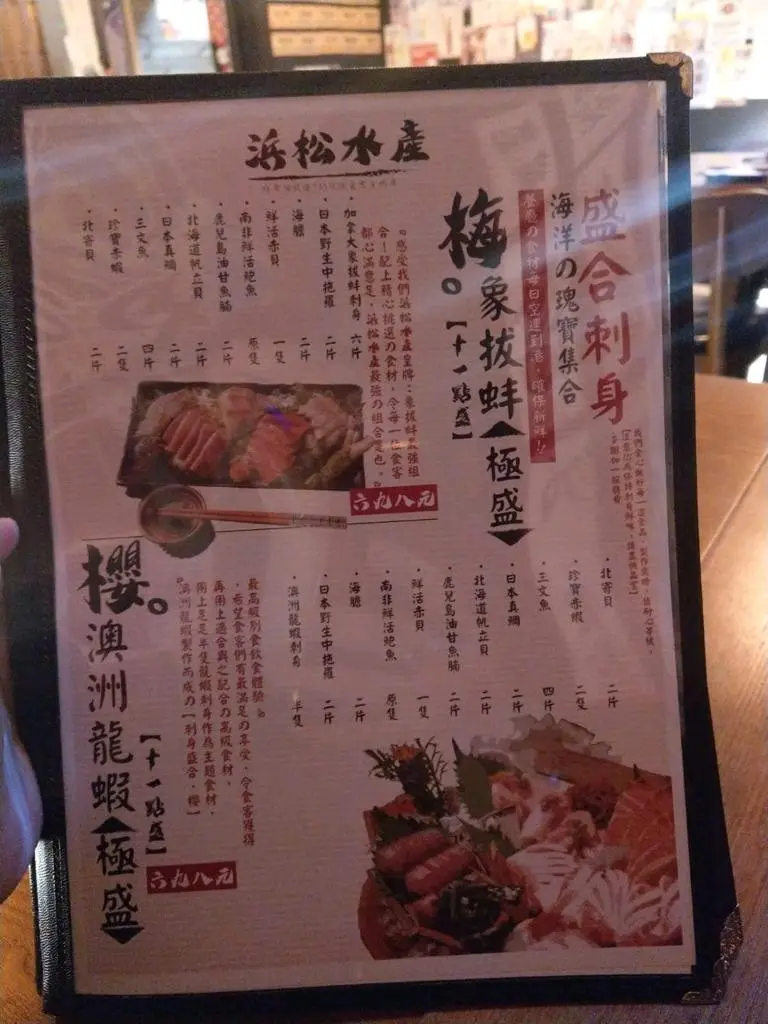 浜松水産
盛合刺身
海洋の瑰寶集合
餐廳の食材每日空運到港，確保新鮮!!
梅。象拔蚌【極盛】
【十一點盛】
『感受我們浜松水產皇牌：象拔蚌最強組
合！配上精心挑選の食材，令每一位食客
都心滿意足，浜松水產最強の組合是也。』
・加拿大象拔蚌刺身 六片
・日本野生中拖羅 二片
・海膽 二片
・鮮活赤貝 一隻
・南非鮮活鮑魚 原隻
・鹿兒島油甘魚腩 二片
・北海道帆立貝 二片
・日本真鯛 二片
・三文魚 四片
・珍寶赤蝦 二隻
・北寄貝 二片
六九八元
・北寄貝 二片
・珍寶赤蝦 二隻
・三文魚 四片
・日本真鯛 二片
・北海道帆立貝 二片
・鹿兒島油甘魚腩 二片
・鮮活赤貝 一隻
・南非鮮活鮑魚 原隻
・海膽 二片
・日本野生中拖羅 二片
・澳洲龍蝦刺身 半隻
最高級別食飲食體驗』
，希望食客們有最滿足の享受，令食客獲得
再衝上適合與之配合の高級食材，
衝上足足半隻龍蝦刺身作為主題食材，
『澳洲龍蝦製作而成の【刺身盛合・櫻】
【十一點盛】
六九八元
櫻。澳洲龍蝦【極盛】